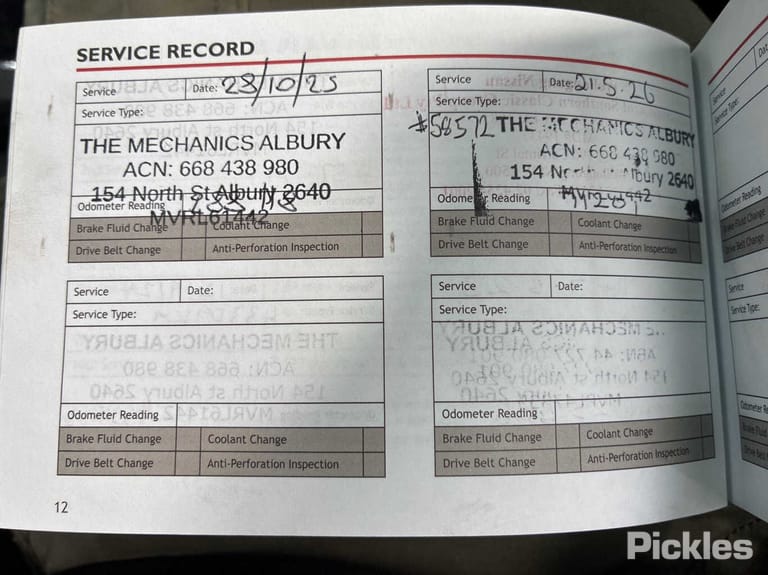 SERVICE RECORD
Service Date: 23/10/25
Service Type:
THE MECHANICS ALBURY
ACN: 668 438 980
154 North St Albury 2640
Odometer Reading
MVRL61442
Brake Fluid Change Coolant Change
Drive Belt Change Anti-Perforation Inspection
Service Date: 21.5.26
Service Type:
#58572 THE MECHANICS ALBURY
ACN: 668 438 980
154 Albury 2640
Odometer Reading
Brake Fluid Change Coolant Change
Drive Belt Change Anti-Perforation Inspection
Service Date:
Service Type:
Odometer Reading
Brake Fluid Change Coolant Change
Drive Belt Change Anti-Perforation Inspection
Service Date:
Service Type:
Odometer Reading
Brake Fluid Change Coolant Change
Drive Belt Change Anti-Perforation Inspection
12
Pickles